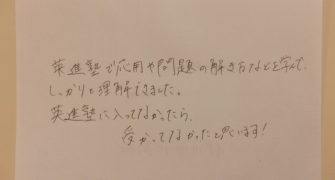 英進塾で応用や問題の解き方などを学んで、
しっかりと理解できました。
英進塾に入ってなかったら、
受かってなかったと思います!